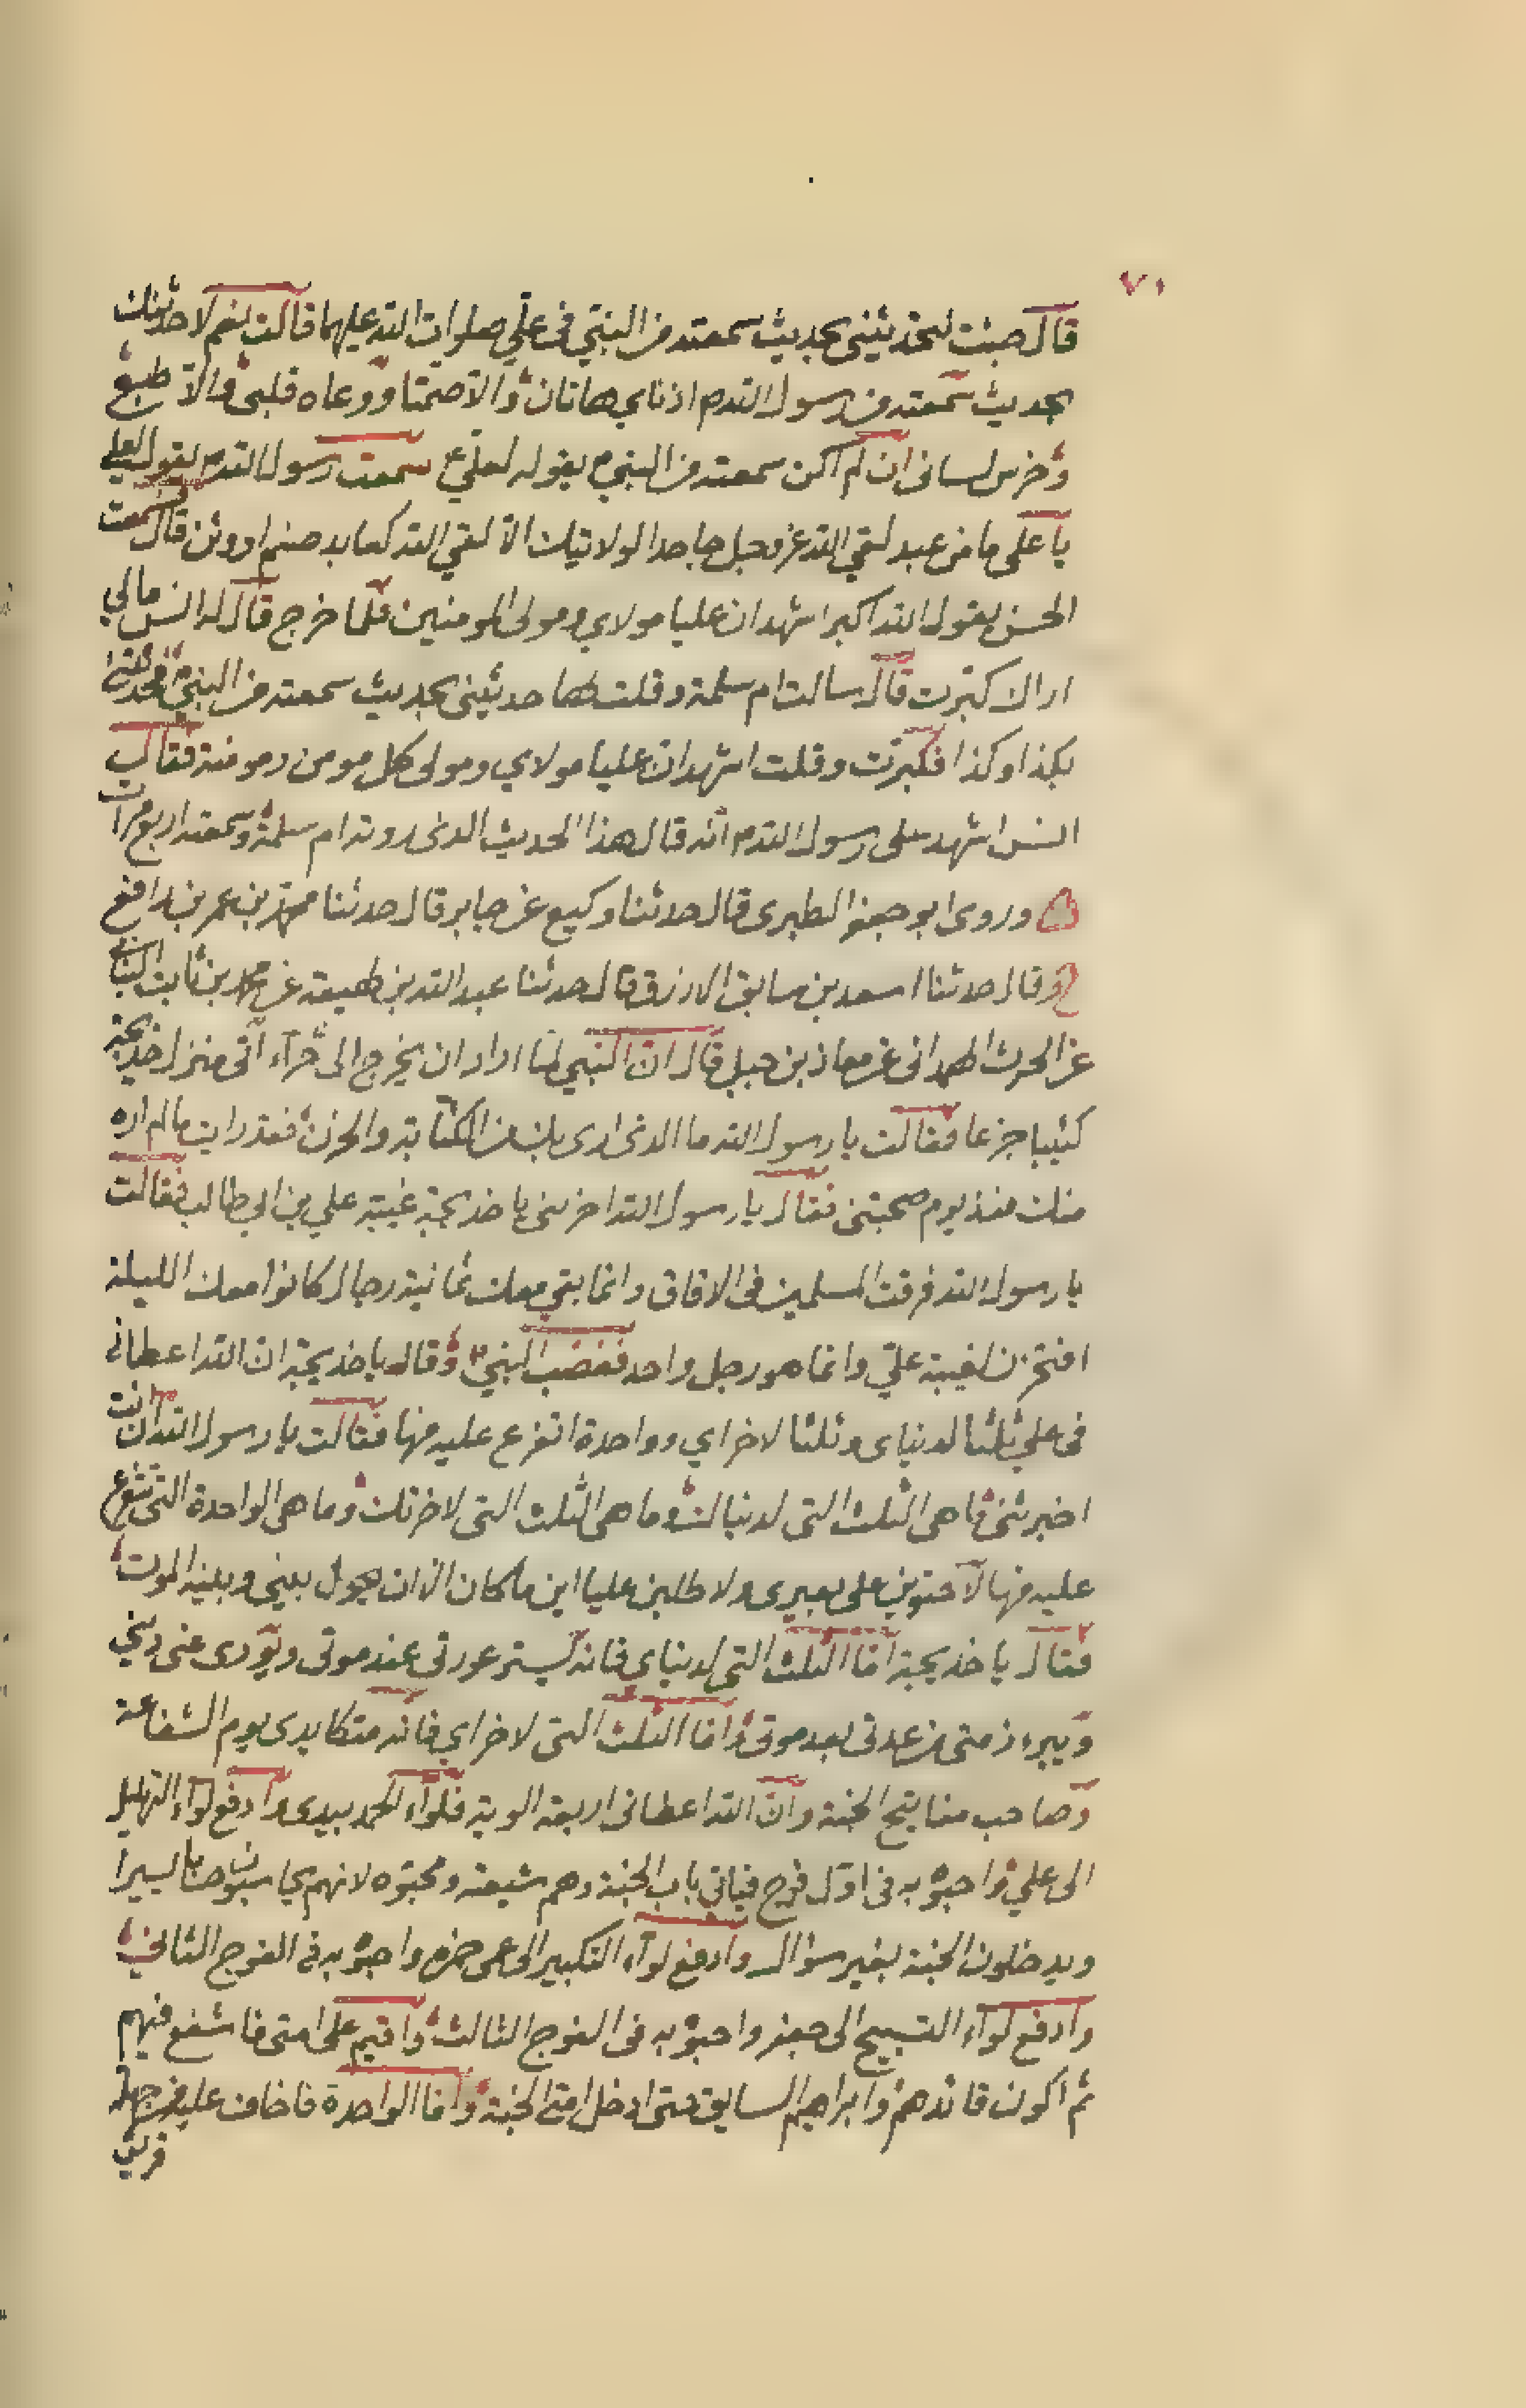 ٧١
قال جئت لتحدثيني بحديث سمعته من النبي في علي صلوات الله عليهما قالت نعم لاحدثنك
بحديث سمعته من رسول الله ص اذناي هاتان والا صمتا ووعاه قلبي والا طبع
وخرس لساني ان لم اكن سمعته من النبي ص يقوله لعلي ع سمعت رسول الله ص يقول لعلي
يا علي ما من عبد لقي الله عز وجل جاحدا لولايتك الا لقي الله كعابد صنم او وثن قال سمعت
الحسن يقول الله اكبر اشهد ان عليا مولاي ومولى المومنين فلما خرج قال له انس مالي
اراك كبرت قال سالت ام سلمة وقلت لها حدثيني بحديث سمعته من النبي ص فحدثتني
بكذا وكذا فكبرت وقلت اشهد ان عليا مولاي ومولى كل مومن ومومنة فقال
انس اشهد على رسول الله ص انه قال هذا الحديث الذي روته ام سلمة وسمعته اربع مرات
وروى ابو جعفر الطبري قال حدثنا وكيع عن جابر قال حدثنا محمد بن عمر بن رافع
وقال حدثنا اسعد بن سابق الازرق قال حدثنا عبد الله بن لهيعة عن محمد بن ثابت البناني
عن الحرث الهمداني عن معاذ بن جبل قال ان النبي لما اراد ان يخرج الى حرآء اتى منزل خديجة
كئيبا جزعا فقالت يا رسول الله ما الذي ارى بك من الكئابة والحزن فقد رايت ما لم اره
منك منذ يوم صحبتني فقال يا رسول الله احزنني يا خديجة غيبة علي بن ابي طالب فقالت
يا رسول الله فرقت المسلمين في الافاق وانما بقي معك ثمانية رجال كانوا معك الليلة
افتحزن لغيبة علي وانما هو رجل واحد فغضب النبي ص وقال يا خديجة ان الله اعطاني
في علي ثلثا لدنياى وثلثا لاخراي وواحدة اتفزع عليه منها فقالت يا رسول الله ان انت
اخبرتني ما هي الثلث التي لدنياك وما هي الثلث التي لاخرتك وما هي الواحدة التي تتفزع
عليه منها لاحتوين على بعيري ولاطلبن عليا اين ما كان الا ان يحول بيني وبينه الموت
فقال يا خديجة اما الثلث التي لدنياي فانه يستر عورتي عند موتى ويؤدى عنى ديني
ويبرء ذمتى من عدتى بعد موتى واما الثلث التي لاخراي فانه متكا يدى يوم الشفاعة
وصاحب مفاتيح الجنة وان الله اعطانى اربعة الوية فلوآء الحمد بيدى وادفع لوآء التهليل
الى علي واحبوه به في اول فوج فياتي باب الجنة وهم شيعته ومحبوه لانهم يحاسبون حسابا يسيرا
ويدخلون الجنة بغير سؤال وادفع لوآء التكبير الى عمى حمزه واحبوه به في الفوج الثاني
وادفع لوآء التسبيح الى جعفر واحبوه به في الفوج الثالث واقيم على امتى فاشفع فيهم
ثم اكون قائدهم وابراهيم السايق حتى ادخل امتى الجنة واما الواحدة فاخاف عليه من جهلة
قريش